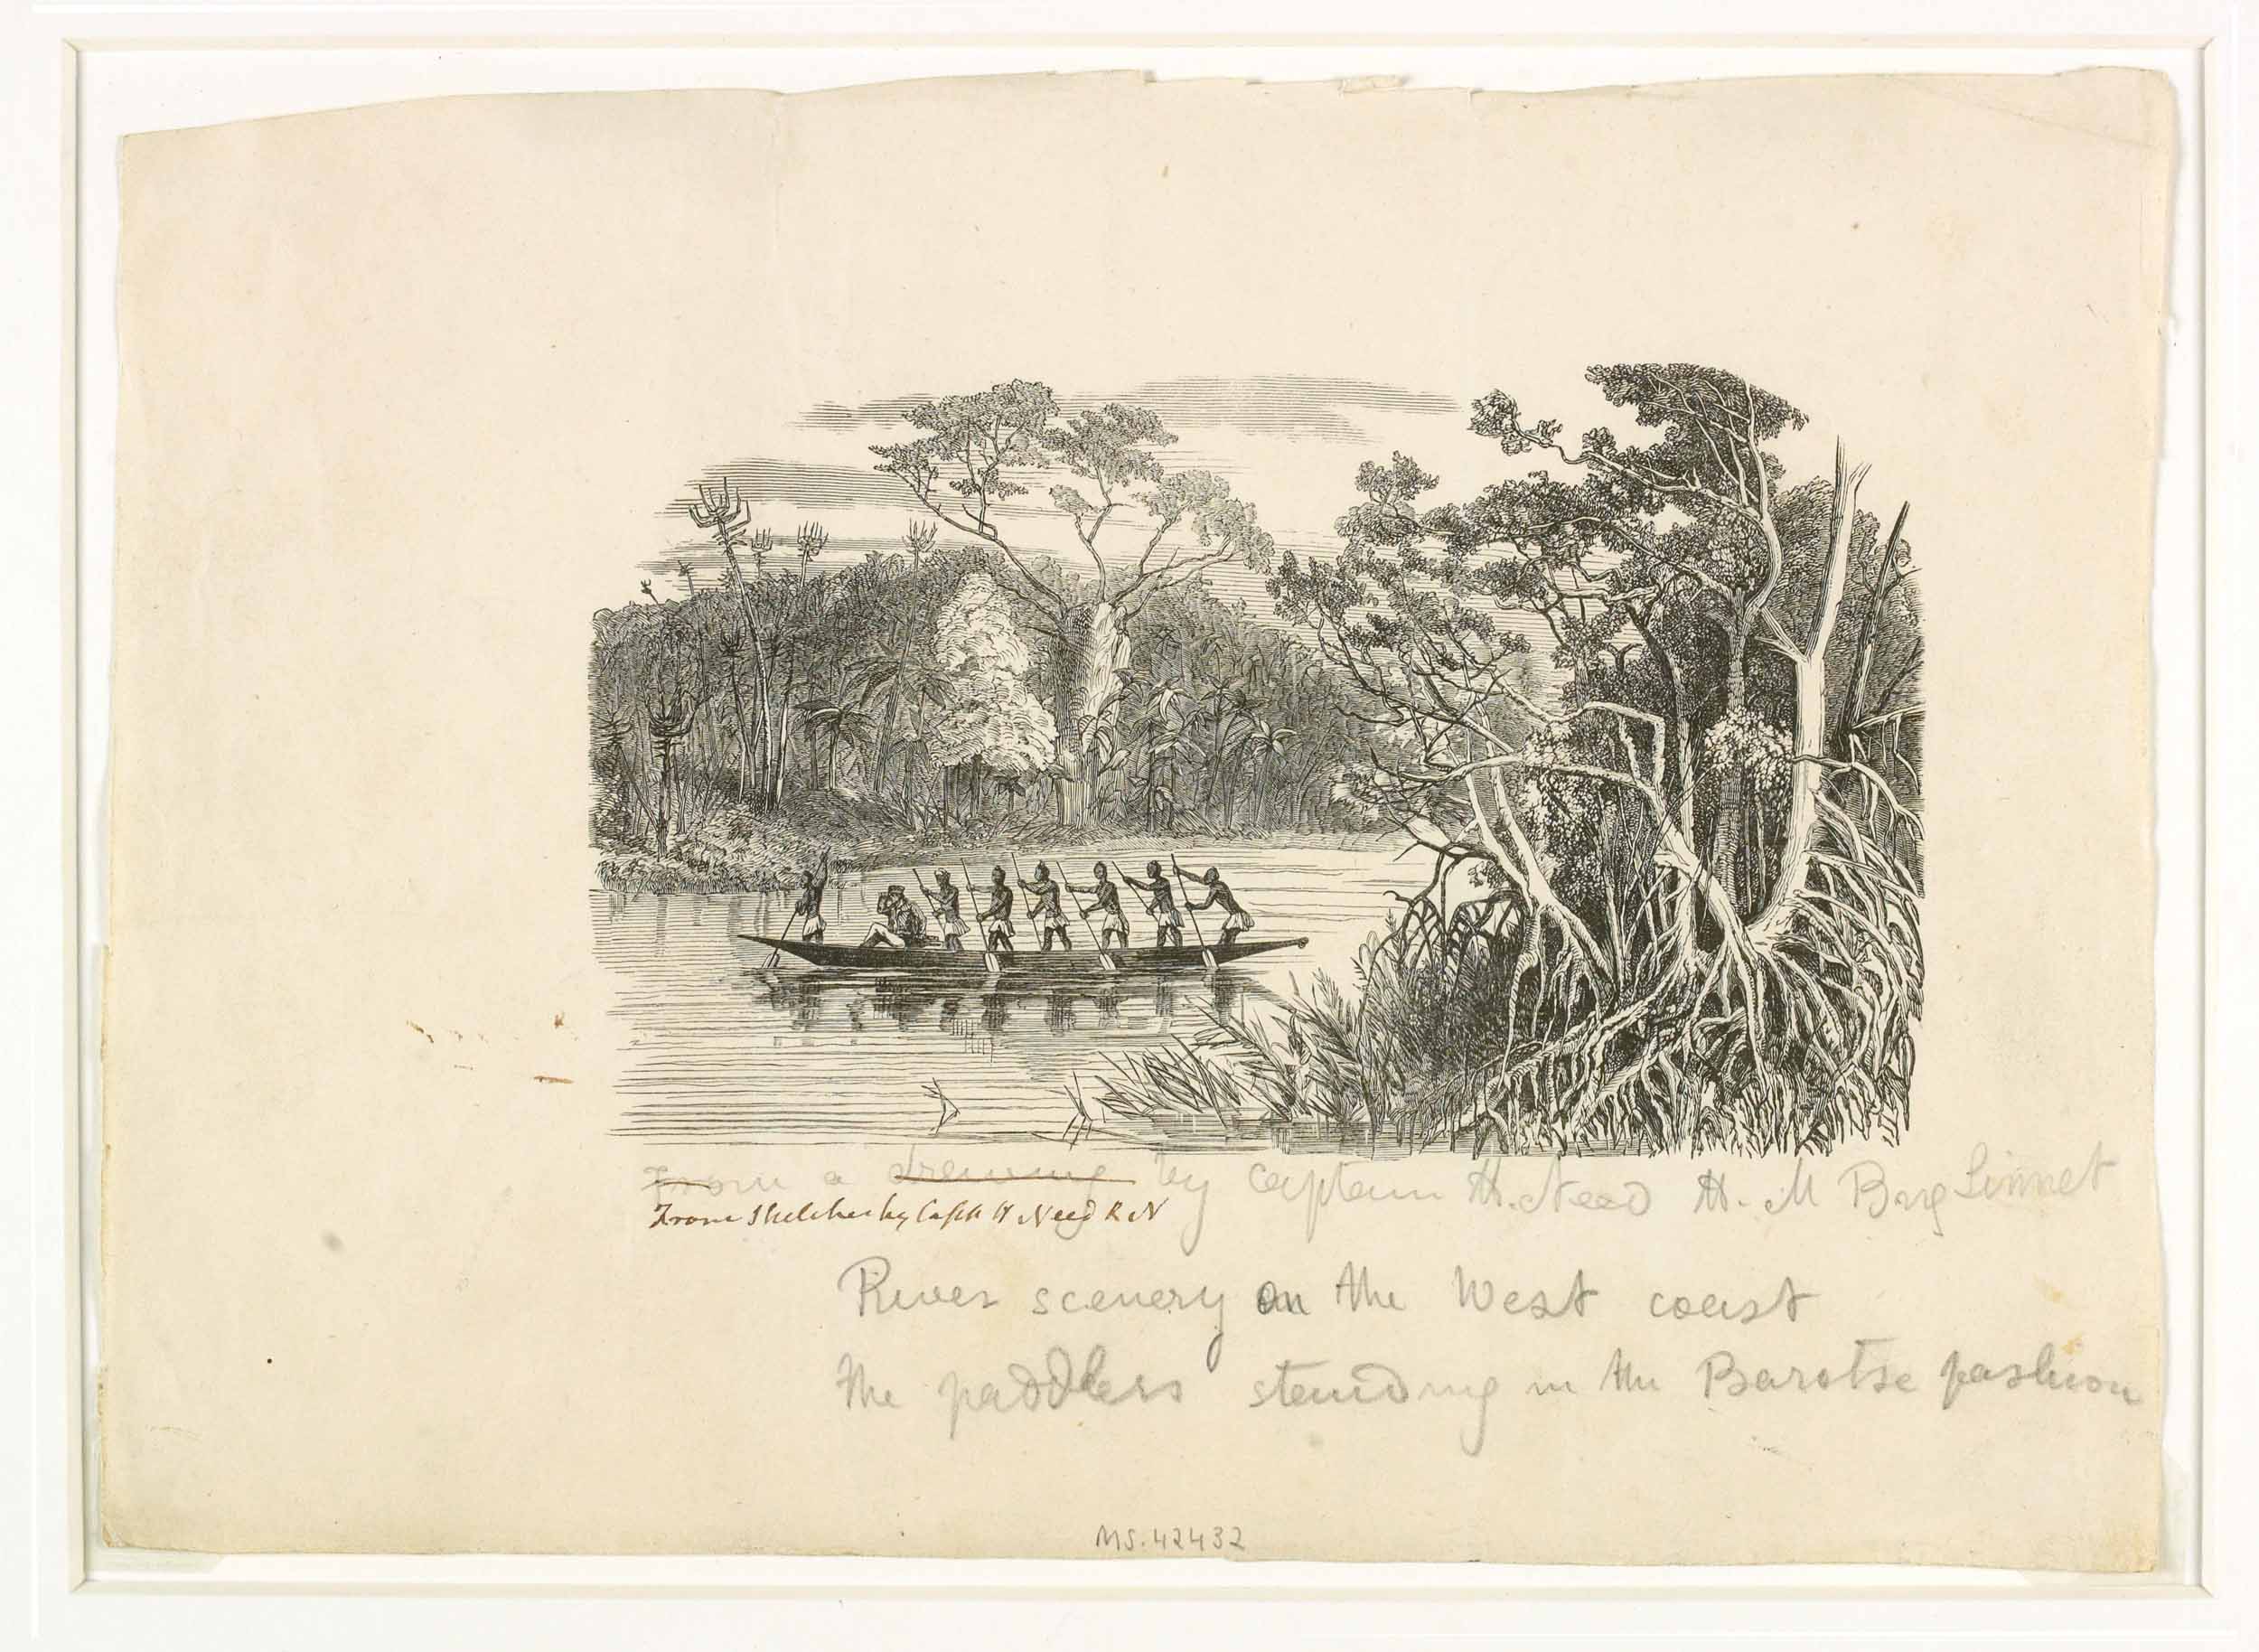 From a drawing by Captain H. Need H. M Brig Linnet
From Sketches by Capt H Need R N
River scenery on the West coast
the paddlers standing in the Barotse fashion
MS. 42432